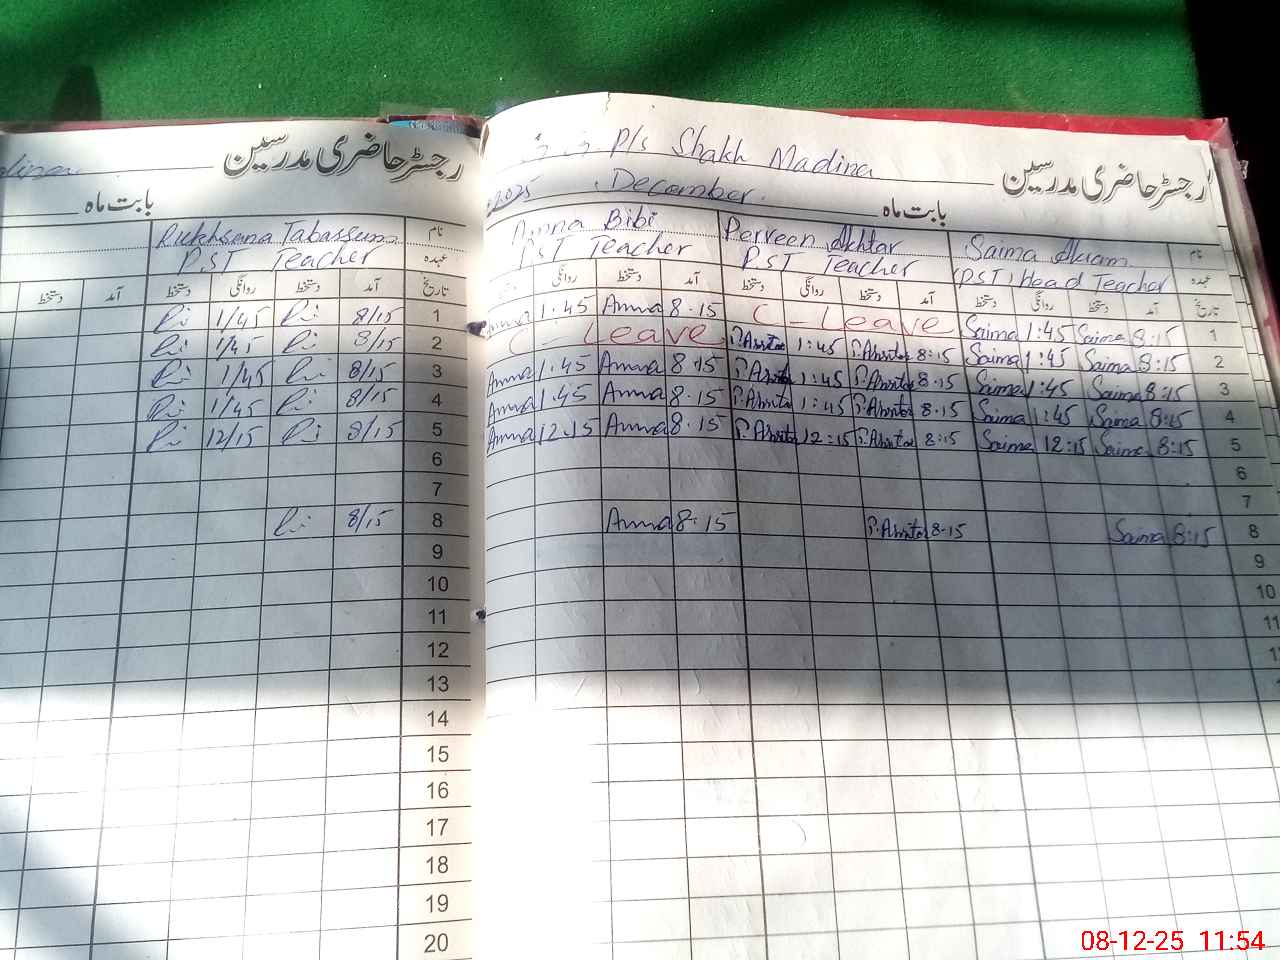 رجسٹر حاضری مدرسین
P/s Shakh Madina
بابت ماہ December. 2025
نام Saima Akram Perveen Akhtar Amna Bibi
عہدہ (PST) Head Teacher PST Teacher PST Teacher
تاریخ آمد دستخط روانگی دستخط آمد دستخط روانگی دستخط آمد دستخط روانگی
1 8:15 Saima 1:45 Saima C-Leave 8·15 Amna 1:45 Amna
2 8:15 Saima 1:45 Saima 8:15 P.Akhtar 1:45 P.Akhtar C-Leave
3 8:15 Saima 1:45 Saima 8·15 P.Akhtar 1:45 P.Akhtar 8·15 Amna 1:45 Amna
4 8:15 Saima 1:45 Saima 8·15 P.Akhtar 1:45 P.Akhtar 8·15 Amna 1:45 Amna
5 8:15 Saima 12:15 Saima 8:15 P.Akhtar 12:15 P.Akhtar 8·15 Amna 12:15 Amna
6
7
8 8:15 Saima 8-15 P.Akhtar 8·15 Amna
9
10
11
رجسٹر حاضری مدرسین
بابت ماہ
نام Rukhsana Tabassum
عہدہ PST Teacher
تاریخ آمد دستخط روانگی دستخط آمد دستخط
1 8/15 1/45
2 8/15 1/45
3 8/15 1/45
4 8/15 1/45
5 8/15 12/15
6
7
8 8/15
9
10
11
12
13
14
15
16
17
18
19
20
08-12-25 11:54